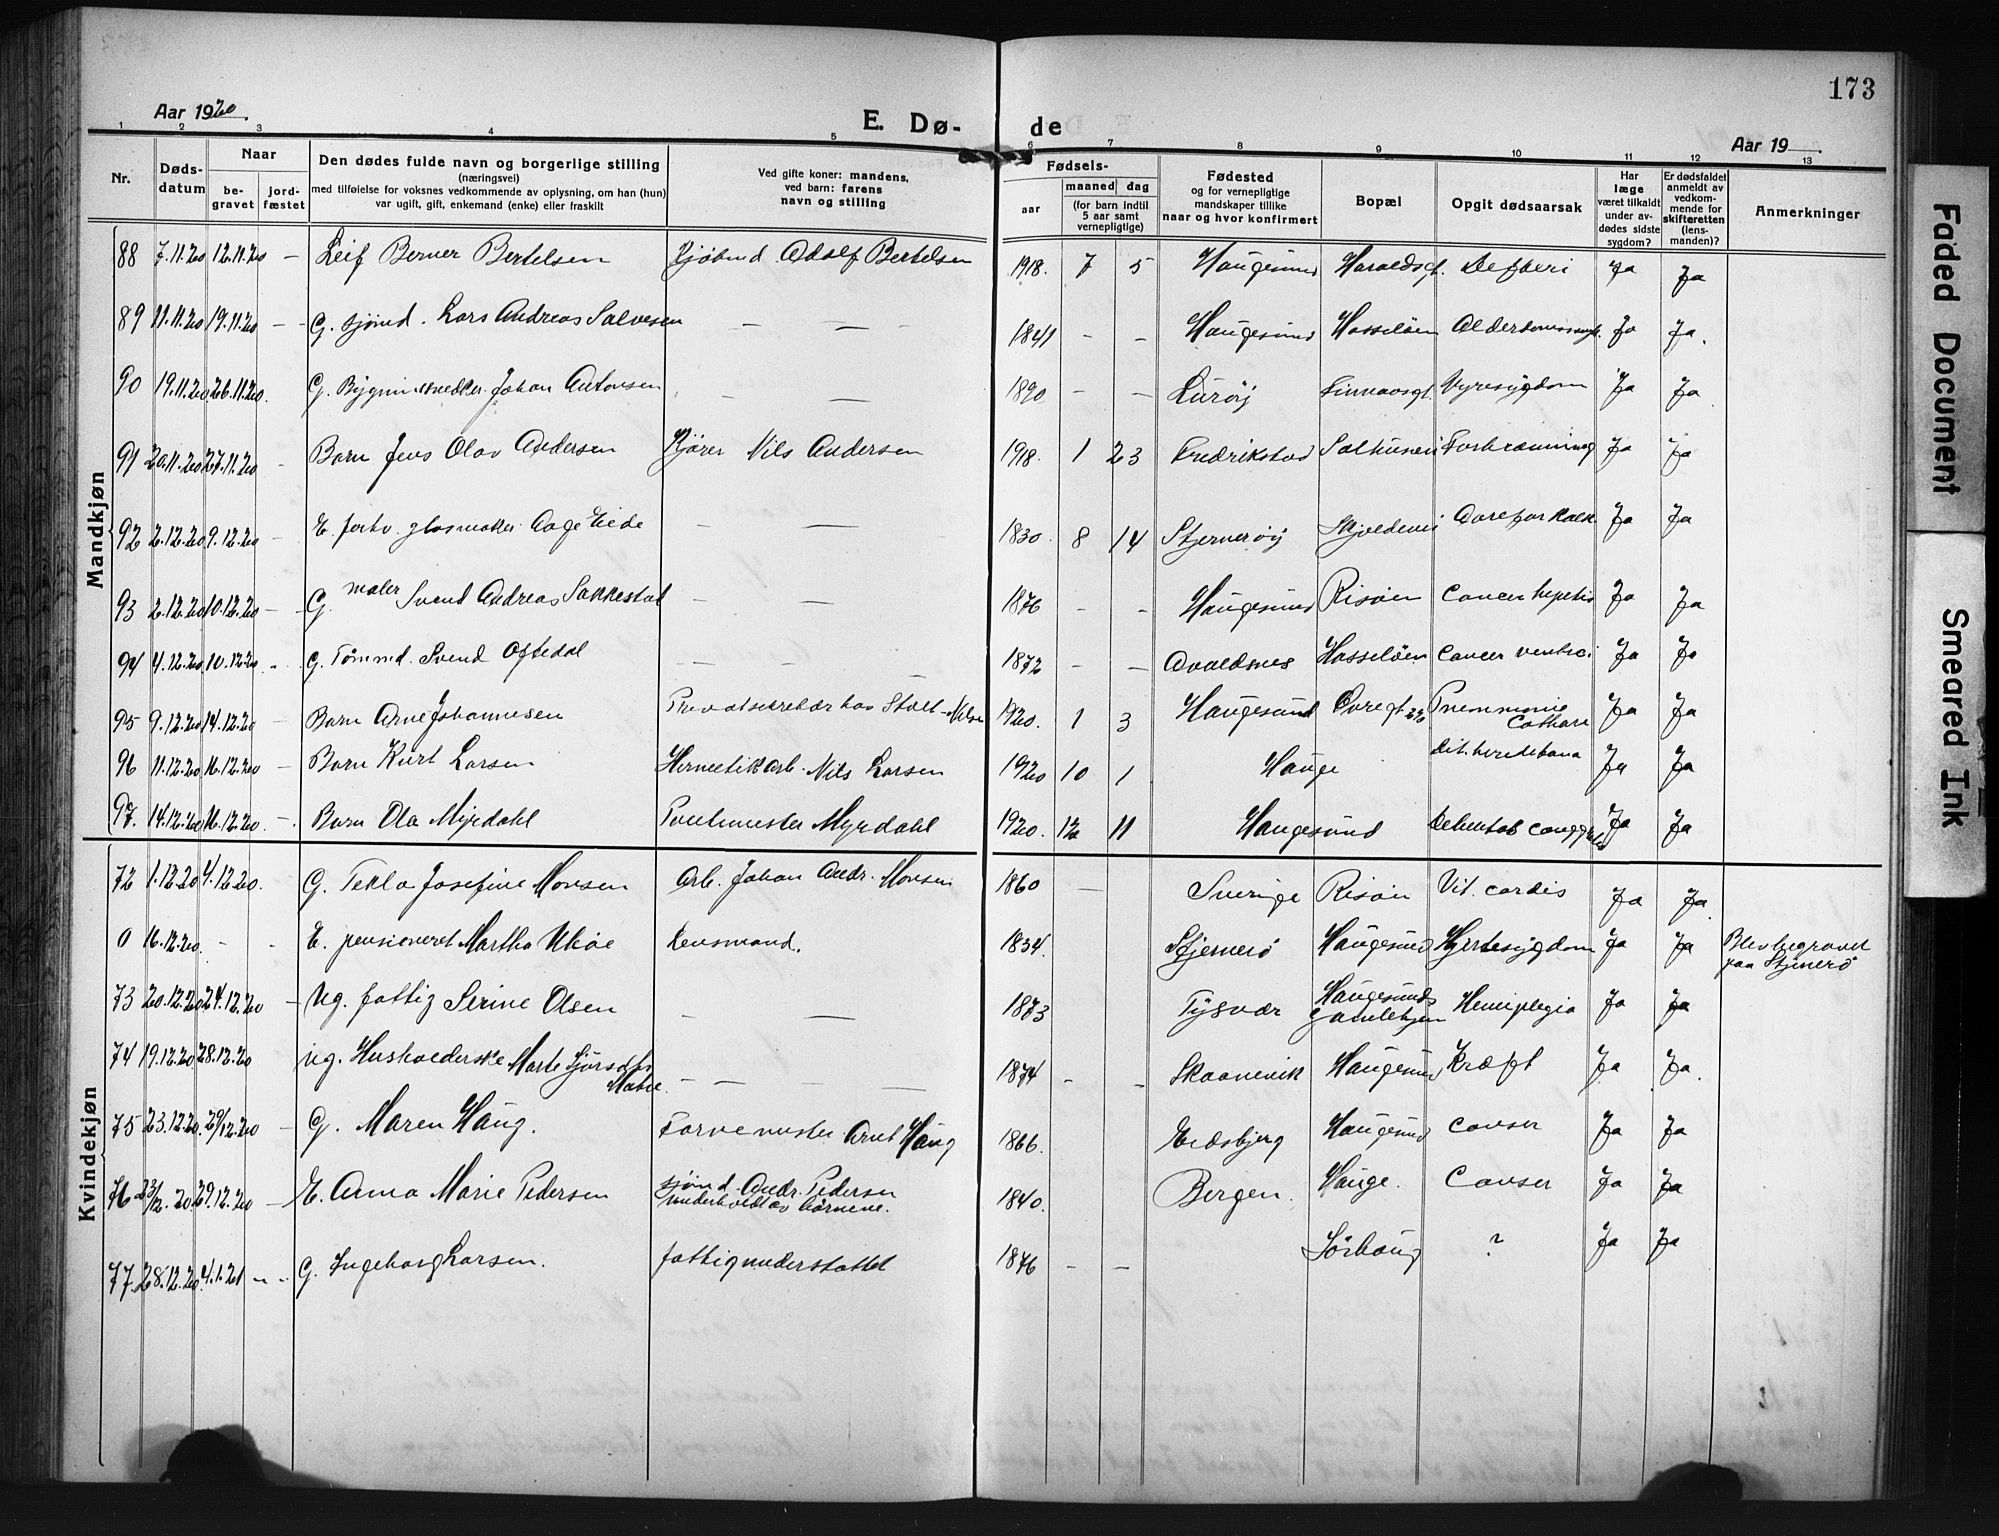 173
Aar 1920.
E. Dø- de
Aar 19
1 2 3 4 5 6 7 8 9 10 11 12 13
Nr.
Døds-
datum
Naar
be-
gravet
jord-
fæstet
Den dødes fulde navn og borgerlige stilling
(næringsvei)
med tilføielse for voksnes vedkommende av oplysning, om han (hun)
var ugift, gift, enkemand (enke) eller fraskilt
Ved gifte koner: mandens,
ved barn: farens
navn og stilling
Fødsels-
aar
maaned
dag
(for barn indtil
5 aar samt
vernepligtige)
Fødested
og for vernepligtige
mandskaper tillike
naar og hvor konfirmert
Bopæl
Opgit dødsaarsak
Har
læge
været tilkaldt
under av-
dødes sidste
sygdom?
Er dødsfaldet
anmeldt av
vedkom-
mende for
skifteretten
(lens-
manden)?
Anmerkninger
Mandkjøn
88 7.11.20 12.11.20 — Leif Berner Bertelsen Kjøbmd Adolf Bertelsen 1918. 7 5 Haugesund Haraldsgt. Difteri Ja Ja
89 11.11.20 19.11.20 — G. sjømd. Lars Andreas Salvesen — — 1841 — — Haugesund Hasseløen Ja Ja.
90 19.11.20 26.11.20. G. Johan Antonsen — — 1890 — — Lurøy Finnaasgt. Nyresygdom Ja Ja
91 20.11.20 27.11.20 — Barn Jens Olav Andersen Kjører Nils Andersen 1918. 1 23 Fredrikstad Salhusvei Forbrænning Ja Ja
92 2.12.20 9.12.20 — E. forhv. glasmaker Aage Eide — — 1830. 8 14 Stjernerøy Skjoldevei Aareforkalk Ja Ja
93 2.12.20 10.12.20 — G. maler Svend Andreas Sakkestad — — 1876 — — Haugesund Risøen Cancer hepatis Ja Ja
94 4.12.20 10.12.20 - G. Tømmd. Svend Oftedal — — 1872 — — Avaldsnes Hasseløen Cancer ventrci Ja Ja
95 9.12.20 14.12.20 — Barn Arne Johannesen Privatsekretær hos Stolt-Nilsen 1920. 1 3 Haugesund Øvregt 220 Pnemmonie Cathari Ja Ja
96 11.12.20 16.12.20 — Barn Kurt Larsen Hermetikarb. Nils Larsen 1920 10 1 Hauge Ja Ja
97. 14.12.20 16.12.20. —. Barn Ola Myrdahl Myrdahl 1920. 12 11 Haugesund Ja Ja
Kvindekjøn
72 1.12.20 4.12.20. G. Tekla Josefine Monsen Arb. Johan Andr. Monsen 1860 — Sverige Risøen Vit. cordis Ja Ja.
0 16.12.20. - - E. pensioneret Martha Utsøe Lensmand. 1834. Stjernerø Haugesund Hjertesygdom Ja Ja Blev begravet
paa Stjernerø
73 20.12.20 24.12.20 — Ug. fattig Serine Olsen — — 1873 Tysvær Haugesunds
gamlehjem Hemiplegia Ja Ja
74 19.12.20 28.12.20 Ug. Husholderske Marte Sjursdtr
Matre. — — — 1874 - - Skaanevik Haugesund Kræft Ja Ja.
75 23.12.20. 29/12.20 — G. Maren Haug. Farvemester Arnt Haug 1866. Eidsbjerg Haugesund Canser Ja Ja
76 23/12.20. 29.12.20 — E. Anna Marie Pedersen sjømd. Andr. Pedersen
underholdt av børnene. 1840. Bergen. Hauge. Canser Ja Ja
77. 28.12.20. 4.1.21 - - G. Ingeborg Larsen. fattigunderstøttet 1846 - - Sørhaug ? Ja Ja
Faded Document
Smeared Ink